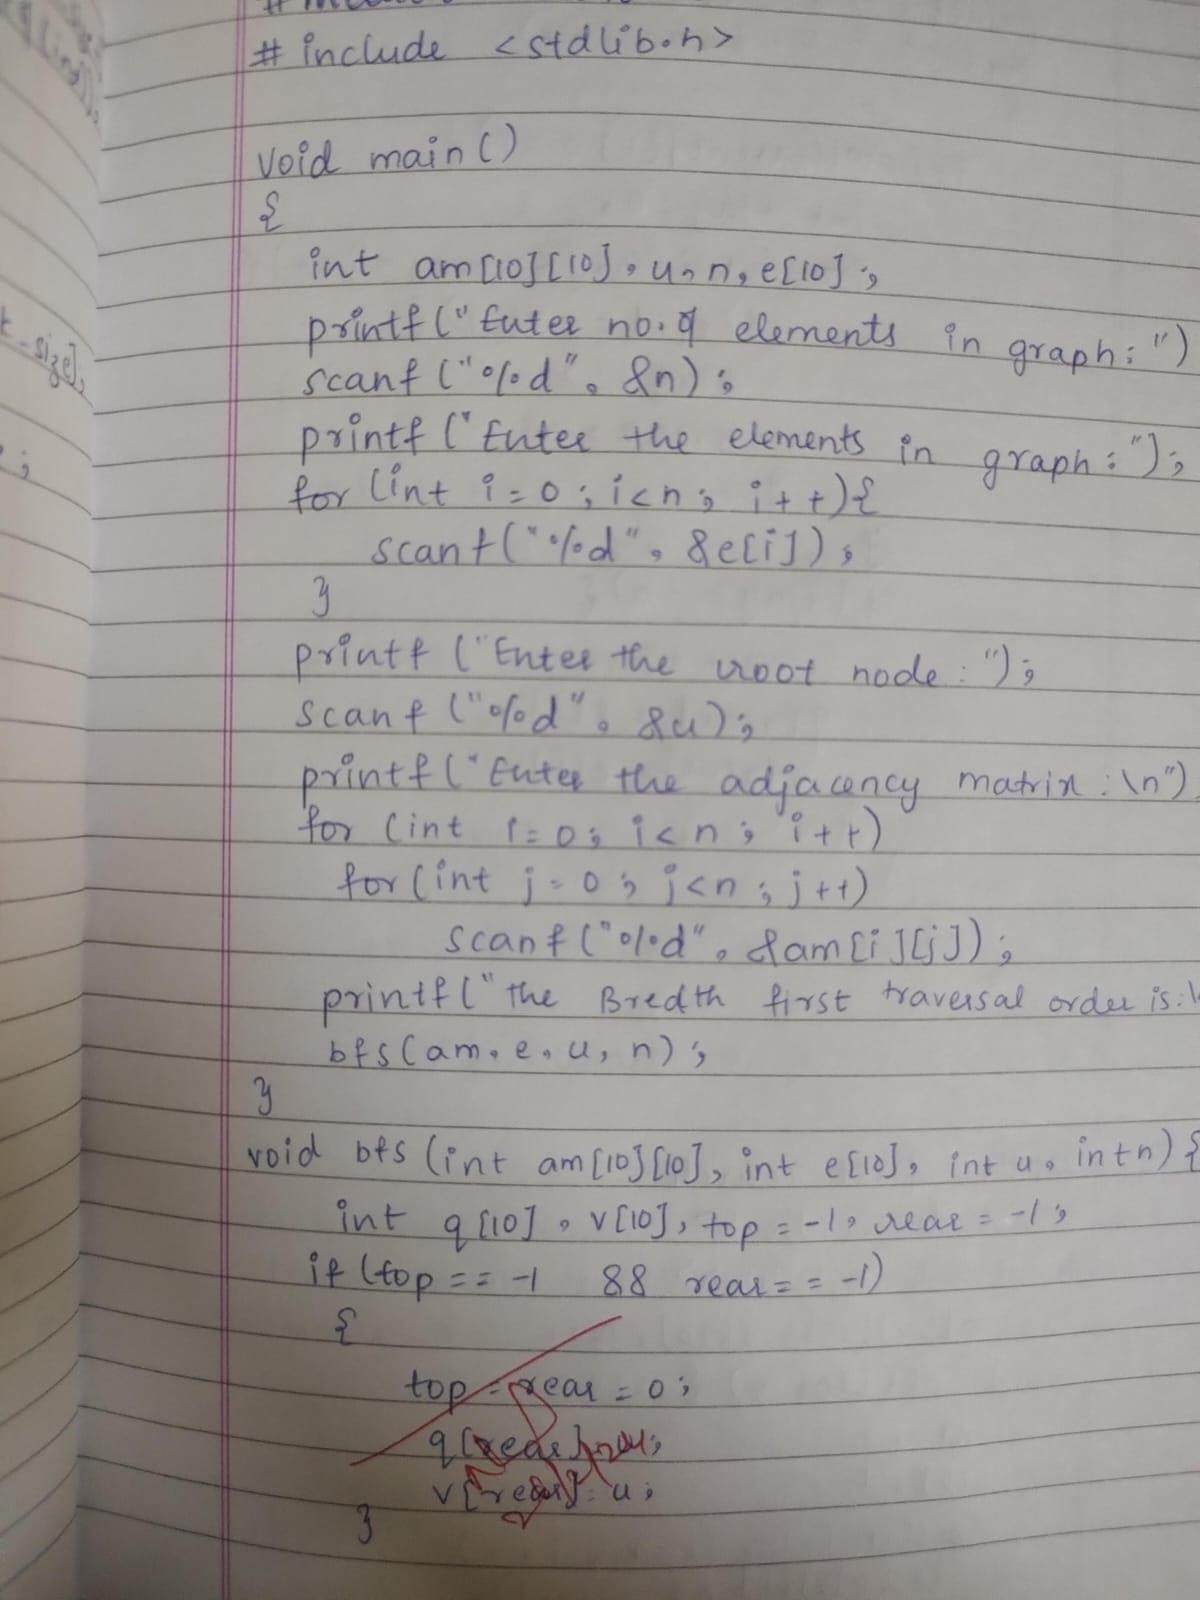 # include <stdlib.h>
void main()
{
int am[10][10], u, n, e[10];
printf("Enter no. of elements in graph:")
scanf("%d", &n);
printf("Enter the elements in graph:");
for (int i=0; i<n; i++){
scanf("%d", &e[i]);
}
printf("Enter the root node:");
scanf("%d", &u);
printf("Enter the adjacency matrix:\n")
for (int i=0; i<n; i++)
for (int j=0; j<n; j++)
scanf("%d", &am[i][j]);
printf("the Bredth first traversal order is:\
bfs(am, e, u, n);
}
void bfs (int am[10][10], int e[10], int u, int n) {
int q[10], v[10], top = -1, rear = -1;
if (top == -1 && rear == -1)
{
top = rear = 0;
q[rear] = u;
v[rear] = u;
}
t_size],
;